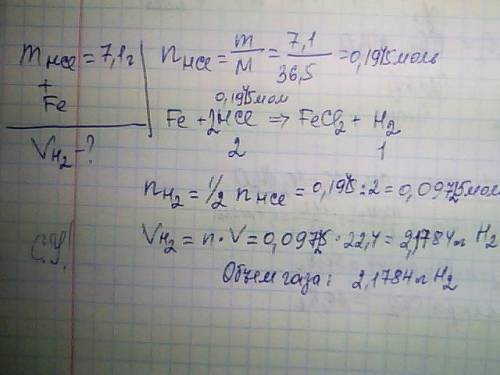 m HCl = 7,1 г
+
Fe
V H₂ - ?
n HCl = m/M = 7,1/36,5 = 0,1945 моль
0,1945 мол
Fe + 2HCl => FeCl₂ + H₂
2 1
n H₂ = 1/2 n HCl = 0,1945 : 2 = 0,09725 мол
V H₂ = n · V = 0,09725 · 22,4 = 2,1784 л H₂
С.У.
Объем газа: 2,1784 л H₂